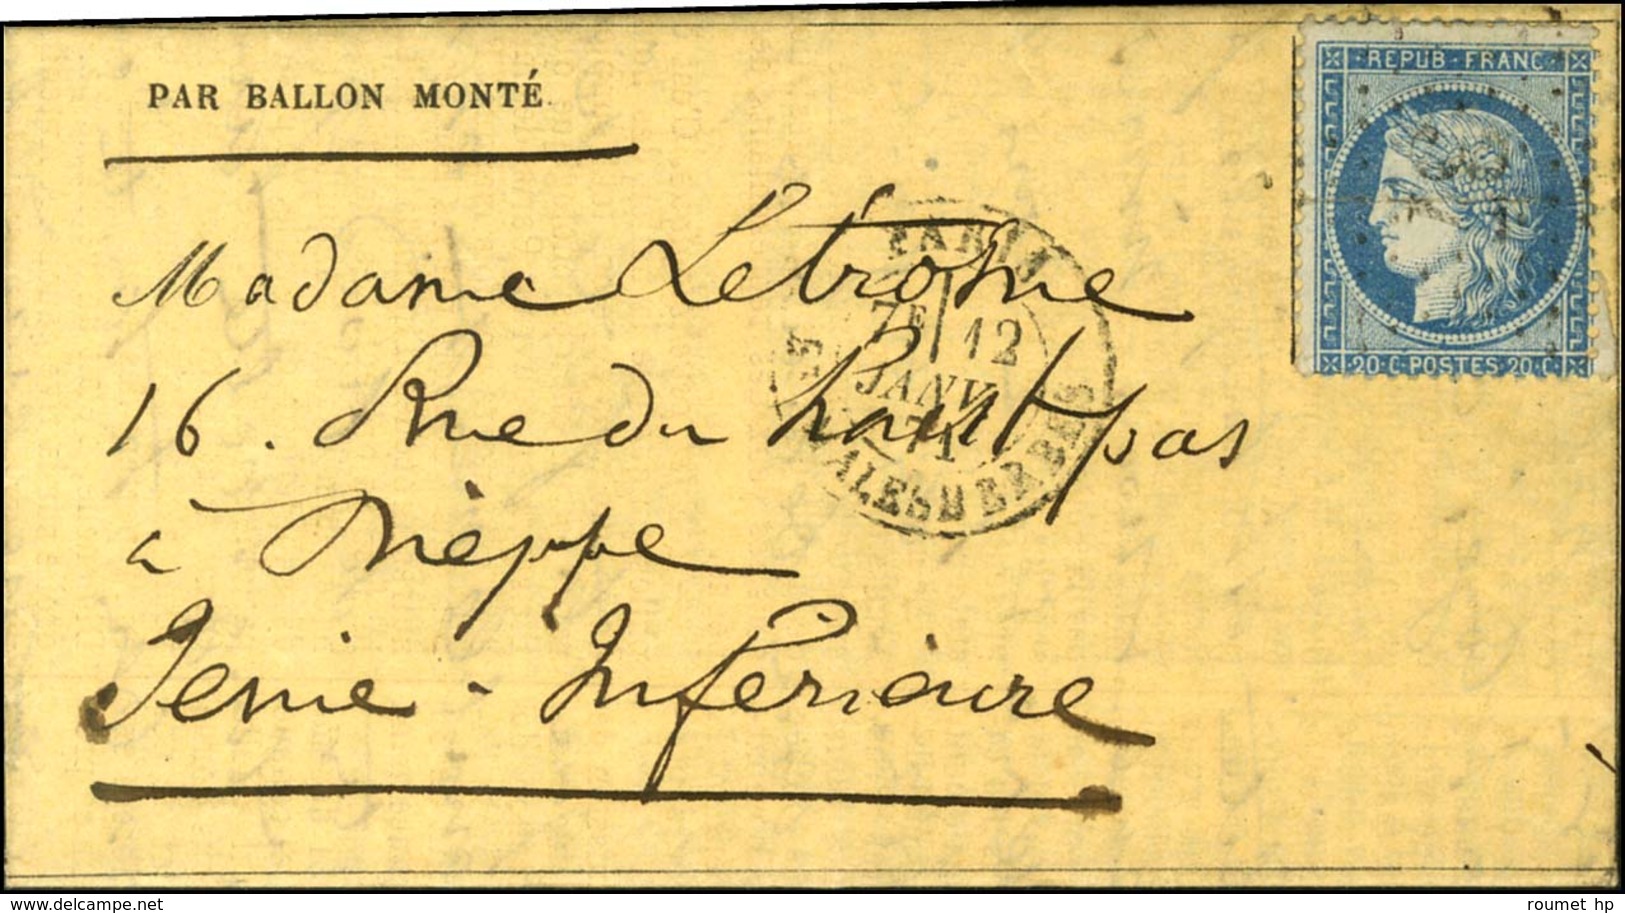 PAR BALLON MONTÉ.
REPUB · FRANC
20 · C · POSTES · 20 · C
Madame Letrosne
16. Rue du haut pas
à Dieppe
Seine-Inférieure
PARIS
7E 12
JANV.
71
MALESHERBES
delcampe.net
roumet hp